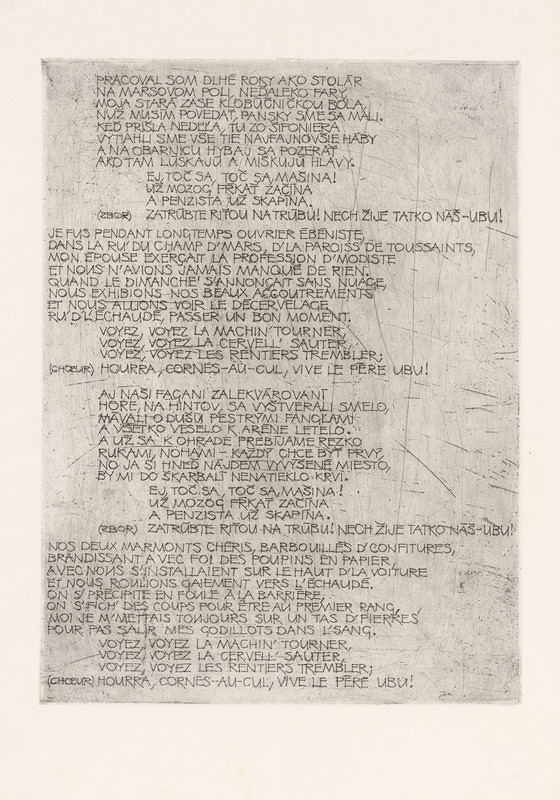 PRACOVAL SOM DLHÉ ROKY AKO STOLÁR
NA MARSOVOM POLI, NEĎALEKO FARY,
MOJA STARÁ ZASE KLOBÚČNÍČKOU BOLA,
NUŽ MUSÍM POVEDAŤ, PANSKY SME SA MALI.
KEĎ PRIŠLA NEDEĽA, TU ZO ŠIFONIERA
VYTIAHLI SME VŠE TIE NAJFAJNOVŠIE HÁBY
A NA OBARNICU HYBAJ SA POZERAŤ
AKO TAM LÚSKAJÚ A MIŠKUJÚ HLAVY.
EJ, TOČ SA, TOČ SA, MAŠINA!
UŽ MOZOG FŔKAŤ ZAČÍNA
A PENZISTA UŽ SKAPÍNA.
(ZBOR) ZATRÚBTE RIŤOU NA TRÚBU! NECH ŽIJE TATKO NÁŠ-UBU!
JE FUS PENDANT LONGTEMPS OUVRIER ÉBÉNISTE,
DANS LA RU' DU CHAMP D'MARS, D'LA PAROISS' DE TOUSSAINTS,
MON ÉPOUSE EXERÇAIT LA PROFESSION D'MODISTE
ET NOUS N'AVIONS JAMAIS MANQUÉ DE RIEN.
QUAND LE DIMANCHE S'ANNONÇAIT SANS NUAGE,
NOUS EXHIBIONS NOS BEAUX ACCOUTREMENTS
ET NOUS ALLIONS VOIR LE DÉCERVELAGE
RU' D'L'ÉCHAUDÉ, PASSER UN BON MOMENT.
VOYEZ, VOYEZ LA MACHIN' TOURNER,
VOYEZ, VOYEZ LA CERVELL' SAUTER,
VOYEZ, VOYEZ LES RENTIERS TREMBLER;
(CHŒUR) HOURRA, CORNES-AU-CUL, VIVE LE PÈRE UBU!
AJ NAŠI FAGANI ZALEKVÁROVANÍ
HORE, NA HINTOV, SA VYŠTVERALI SMELO,
MÁVALI O DUŠU PESTRÝMI FANGĽAMI
A VŠETKO VESELO K ARÉNE LETELO.
A UŽ SA K OHRADE PREBÍJAME REZKO
RUKAMI, NOHAMI – KAŽDÝ CHCE BYŤ PRVÝ,
NO JA SI HNEĎ NÁJDEM VYVÝŠENÉ MIESTO,
BY MI DO ŠKARBÁL NENATIEKLO KRVI.
EJ, TOČ SA, TOČ SA, MAŠINA!
UŽ MOZOG FŔKAŤ ZAČÍNA
A PENZISTA UŽ SKAPÍNA.
(ZBOR) ZATRÚBTE RIŤOU NA TRÚBU! NECH ŽIJE TATKO NÁŠ-UBU!
NOS DEUX MARMONTS CHÉRIS, BARBOUILLÉS D'CONFITURES,
BRANDISSANT AVEC FOI DES POUPINS EN PAPIER,
AVEC NOUS S'INSTALLAIENT SUR LE HAUT D'LA VOITURE
ET NOUS ROULIONS GAIEMENT VERS L'ÉCHAUDÉ.
ON S'PRÉCIPITE EN FOULE À LA BARRIÈRE,
ON S'FICH' DES COUPS POUR ÊTRE AU PREMIER RANG,
MOI JE M'METTAIS TOUJOURS SUR UN TAS D'PIERRES
POUR PAS SALIR MES GODILLOTS DANS L'SANG.
VOYEZ, VOYEZ LA MACHIN' TOURNER,
VOYEZ, VOYEZ LA CERVELL' SAUTER,
VOYEZ, VOYEZ LES RENTIERS TREMBLER;
(CHŒUR) HOURRA, CORNES-AU-CUL, VIVE LE PÈRE UBU!